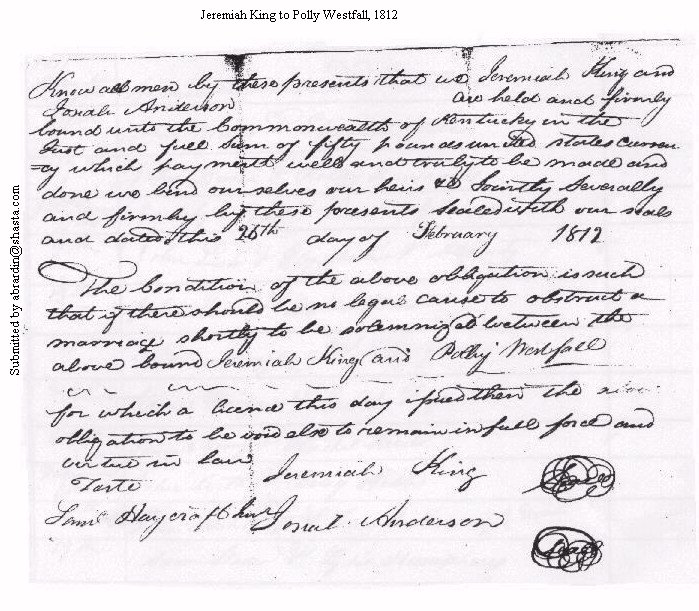 Jeremiah King to Polly Westfall, 1812
Submitted by abrardin@shasta.com
Know all men by these presents that we Jeremiah King and
Jonah Anderson are held and firmly
bound unto the Commonwealth of Kentucky in the
Just and full Sum of fifty pounds united states curren
=cy which payment well and truly to be made and
done we bind our selves our heirs &c Jointly Severally
and firmly by these presents sealed with our seals
and dated this 26th day of February 1812
The Condition of the above obligation is such
that if there should be no legal cause to obstruct a
marriage shortly to be solemnized between the
above bound Jeremiah King and Polly Westfall
for which a licence this day issued then the above
obligation to be void else to remain in full force and
virtue in law
Teste Jeremiah King Seal
Saml Haycraft Anderson